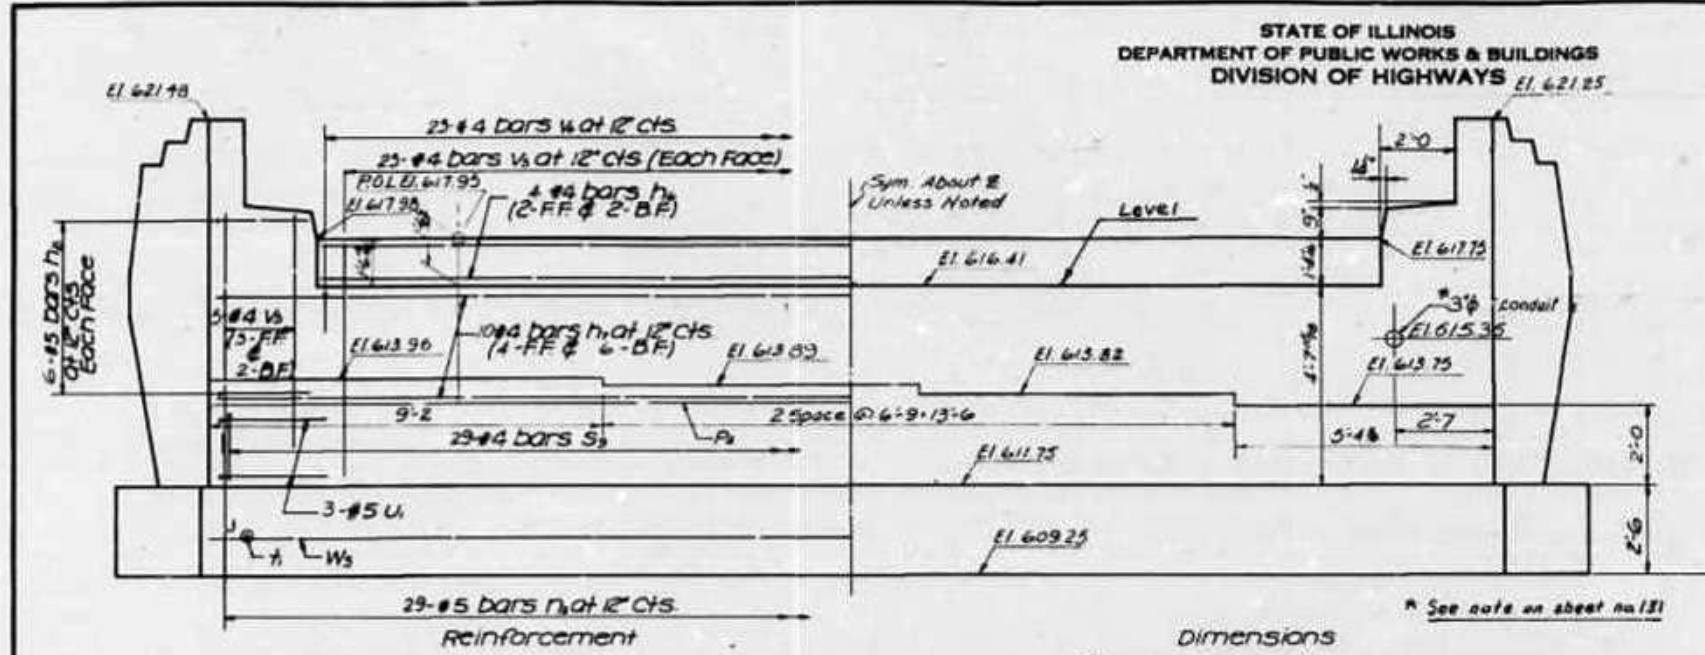 STATE OF ILLINOIS
DEPARTMENT OF PUBLIC WORKS & BUILDINGS
DIVISION OF HIGHWAYS
El. 621.48
El. 621.25
25-#4 bars V6 at 12" cts.
2'-0
25-#4 bars V5 at 12" cts (Each Face)
P.O.L. El. 617.95
4-#4 bars h6
(2-F.F. & 2-B.F.)
El. 617.98
Sym. About ℄
Unless Noted
Level
9"
El. 617.75
El. 616.41
6-#5 bars h2
at 12" cts
Each Face
3"φ Conduit
5-#4 V3
3-F.F.
&
2-B.F.
10-#4 bars h1 at 12" cts.
(4-F.F. & 6-B.F.)
El. 615.36
El. 613.96
El. 613.89
El. 613.82
El. 613.75
9'-2
2 Space @ 6'-9 = 13'-6
2'-7
29-#4 bars S3
P2
2'-0
El. 611.75
3-#5 U1
2'-6
El. 609.25
W3
29-#5 bars n1 at 12" cts.
* See note on sheet no. 131
Reinforcement
Dimensions